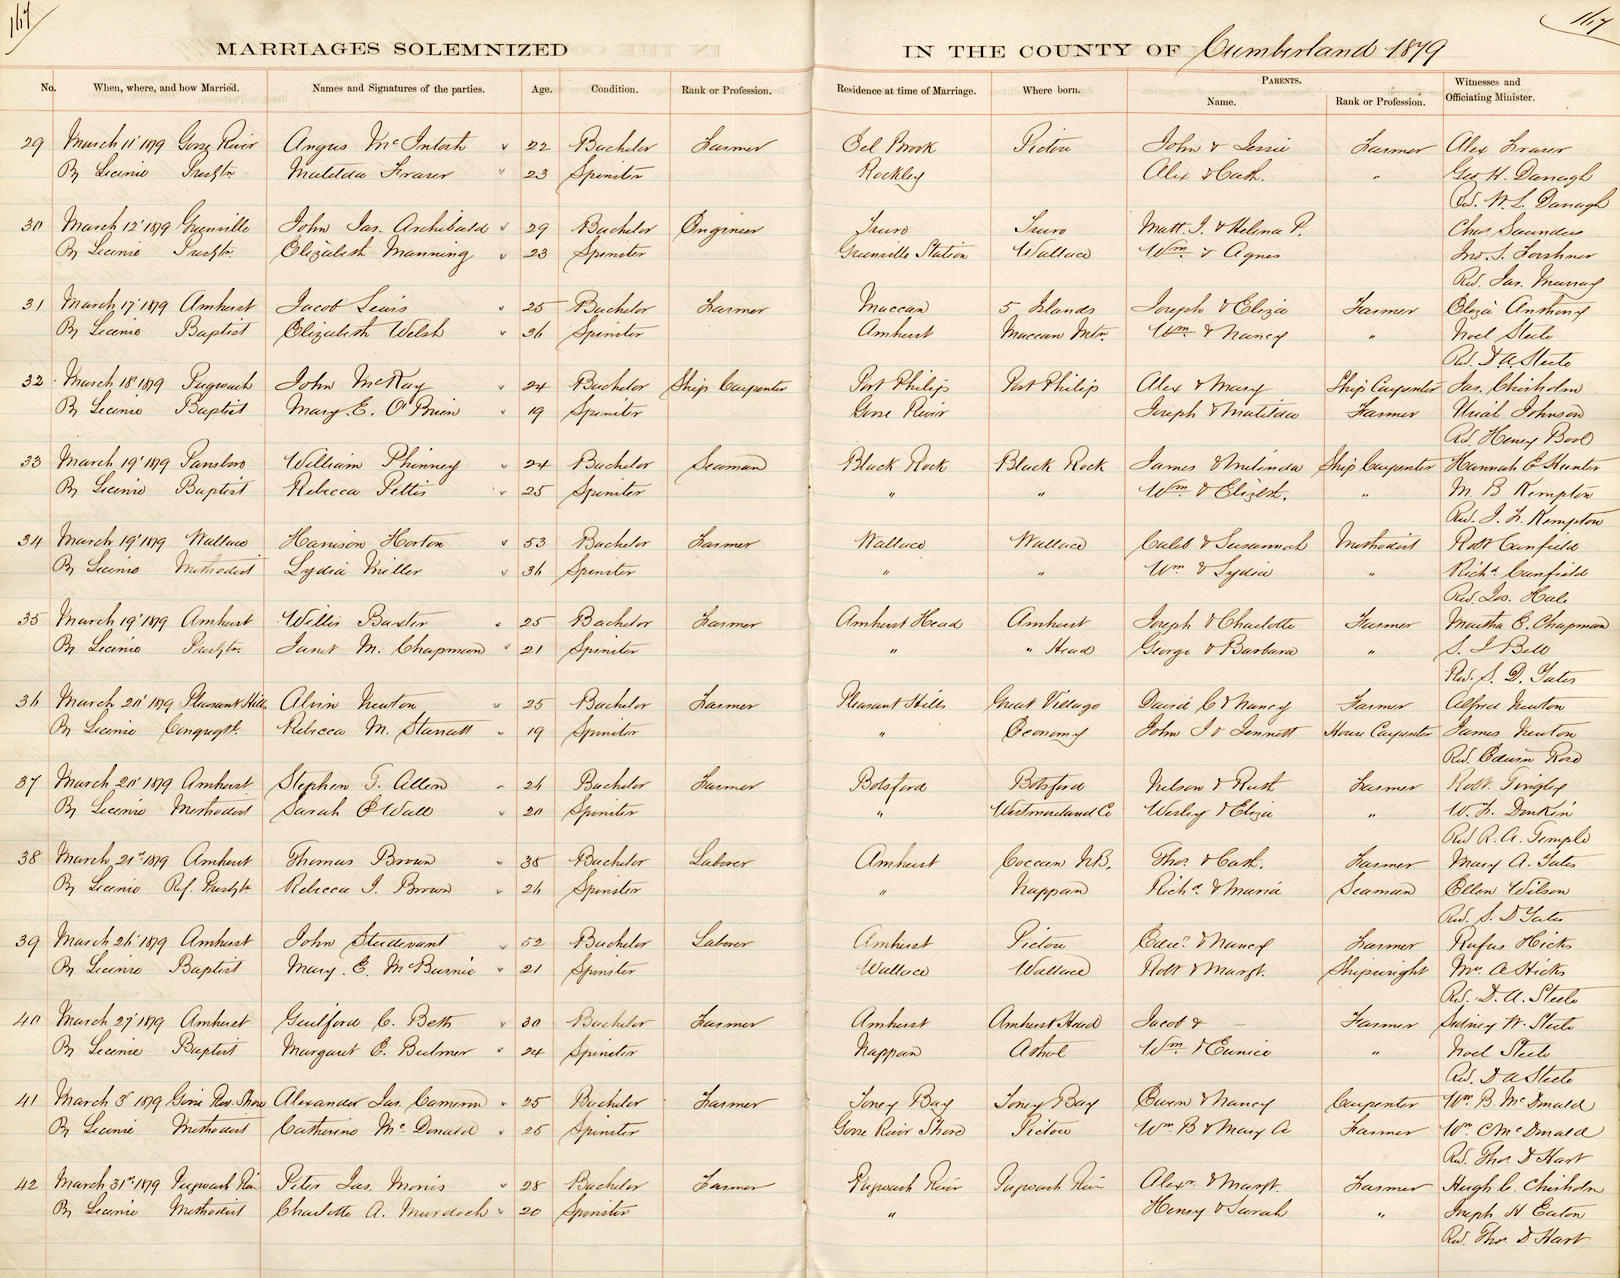 167
167
MARRIAGES SOLEMNIZED IN THE COUNTY OF Cumberland 1879
No. When, where, and how Married. Names and Signatures of the parties. Age. Condition. Rank or Profession. Residence at time of Marriage. Where born. PARENTS. Name. Rank or Profession. Witnesses and Officiating Minister.
29 March 11' 1879 Goose River Angus McIntosh 22 Bachelor Farmer Eel Brook Pictou John & Jessie Farmer Alex Fraser
By Licence Presbytn. Matilda Fraser 23 Spinster Rockley Alex & Cath. " Geo H. Danagh
Rev. W. L. Danagh
30 March 12' 1879 Greenville John Jas. Archibald 29 Bachelor Engineer Truro Truro Matt. I. & Helena P. Chas Saunders
By Licence Presbytn. Elizabeth Manning 23 Spinster Greenville Station Wallace Wm. & Agnes Jno. S. Forshner
Rev. Jas. Murray
31 March 17' 1879 Amherst Jacob Lewis 25 Bachelor Farmer Maccan 5 Islands Joseph & Eliza Farmer Eliza Anthony
By Licence Baptist Elizabeth Welsh 36 Spinster Amherst Maccan Mtn. Wm. & Nancy " Noel Steele
Rev. D A Steele
32 March 18' 1879 Pugwash John McKay 24 Bachelor Ship Carpenter Port Philip Port Philip Alex & Mary Ship Carpenter Jas. Chisholm
By Licence Baptist Mary E. O'Brien 19 Spinster Goose River Joseph & Matilda Farmer Uriah Johnson
Rev. Henry Bool
33 March 19' 1879 Parrsboro William Phinney 24 Bachelor Seaman Black Rock Black Rock James & Milinda Ship Carpenter Hannah E Hunter
By Licence Baptist Rebecca Pettis 25 Spinster " " Wm. & Elizbth. " M. B Kempton
Rev. J. F. Kempton
34 March 19' 1879 Wallace Harrison Horton 53 Bachelor Farmer Wallace Wallace Caleb & Susannah Methodist Robt Canfield
By Licence Methodist Lydia Miller 36 Spinster " " Wm & Lydia " Richd. Canfield
Rev. Jos. Hale
35 March 19' 1879 Amherst Willis Baxter 25 Bachelor Farmer Amherst Head Amherst Joseph & Charlotte Farmer Martha E. Chapman
By Licence Presbytn. Janet M. Chapman 21 Spinster " " Head George & Barbara " S. J Bell
Rev. S. D. Yates
36 March 20' 1879 Pleasant Hills Alvin Newton 25 Bachelor Farmer Pleasant Hills Great Village David C & Nancy Farmer Alfred Newton
By Licence Congregtl. Rebecca M. Starratt 19 Spinster " Economy John I & Jennett House Carpenter James Newton
Rev. Edwin Rose
37 March 20' 1879 Amherst Stephen T. Allen 26 Bachelor Farmer Botsford Botsford Nelson & Ruth Farmer Robt. Tingley
By Licence Methodist Sarah E Wall 20 Spinster " Westmoreland Co Wesley & Eliza " W. F. Donkin
Rev R. A. Temple
38 March 21st 1879 Amherst Thomas Brown 35 Bachelor Laborer Amherst Coccan N.B. Thos. & Cath. Farmer Mary A. Yates
By Licence Ref. Presbytn Rebecca J. Brown 26 Spinster " Nappan Richd. & Maria Seaman Ellen Wilson
Rev. S. D Yates
39 March 26' 1879 Amherst John Studevant 52 Bachelor Laborer Amherst Pictou Edwd. & Nancy Farmer Rufus Hicks
By Licence Baptist Mary. E. McBurnie 21 Spinster Wallace Wallace Robt & Margt. Shipwright Mrs. A Hicks
Rev. D. A. Steele
40 March 27' 1879 Amherst Guilford C. Beth 30 Bachelor Farmer Amherst Amherst Head Jacob & — Farmer Sidney W. Steele
By Licence Baptist Margaret E. Bulmer 24 Spinster Nappan Athol Wm. & Eunice " Noel Steele
Rev. D A Steele
41 March 3d 1879 Goose Riv. Shore Alexander Jas. Cameron 25 Bachelor Farmer Toney Bay Toney Bay Ewen & Nancy Carpenter Wm B. McDonald
By Licence Methodist Catherine McDonald 25 Spinster Goose River Shore Pictou Wm. B & Mary A Farmer Wm. C McDonald
Rev. Thos D Hart
42 March 31st 1879 Pugwash Riv. Peter Jas. Morris 28 Bachelor Farmer Pugwash River Pugwash Riv. Alexr. & Margt. Farmer Hugh C. Chisholm
By Licence Methodist Charlotte A. Murdoch 20 Spinster " Henry & Sarah " Joseph N Eaton
Rev. Thos. D Hart